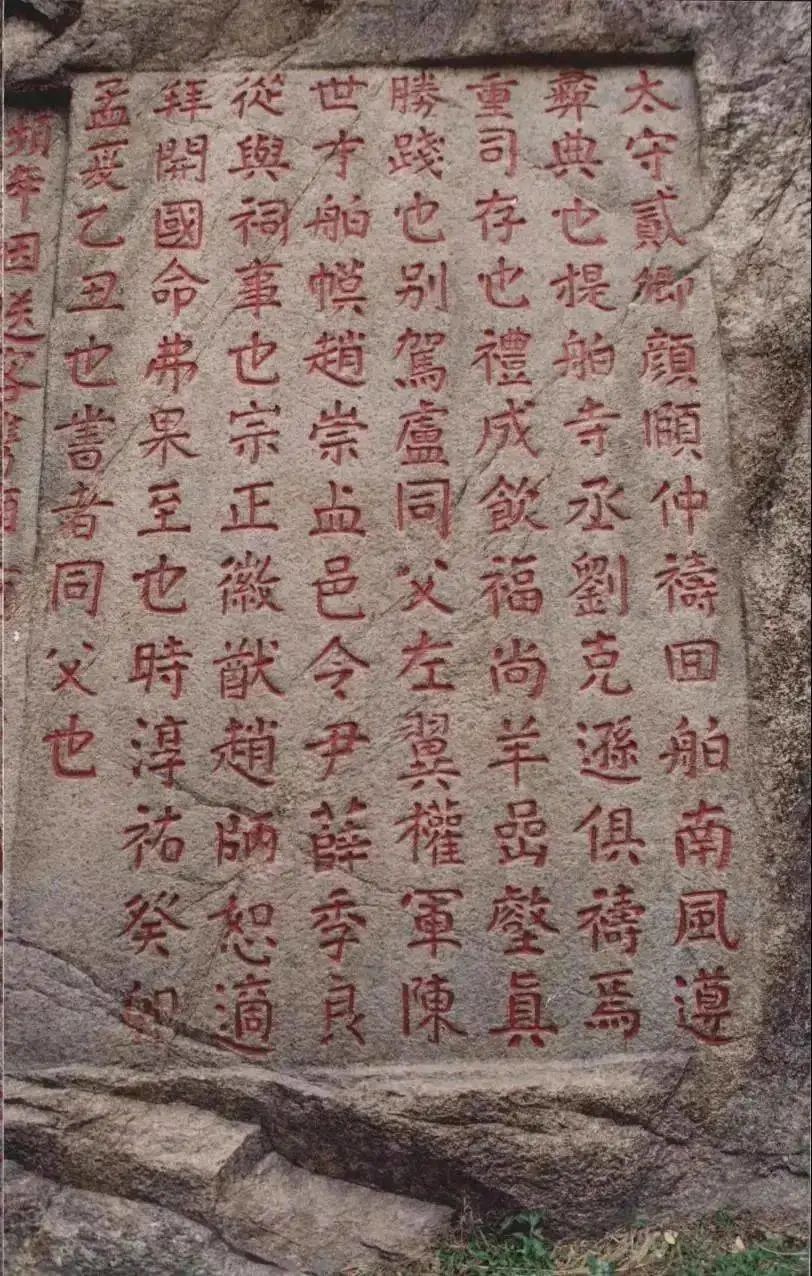 太守貳卿顏頤仲禱回舶南風遵
彝典也提舶寺丞劉克遜俱禱焉
重司存也禮成飲福尚羊嵒壑眞
勝踐也别駕盧同父左翼權軍陳
世才舶幙趙崇邑令尹薛季良
從與祠事也宗正徽猷趙師恕適
拜開國命弗果至也時淳祐癸卯
孟夏乙丑也書者同父也
因送客